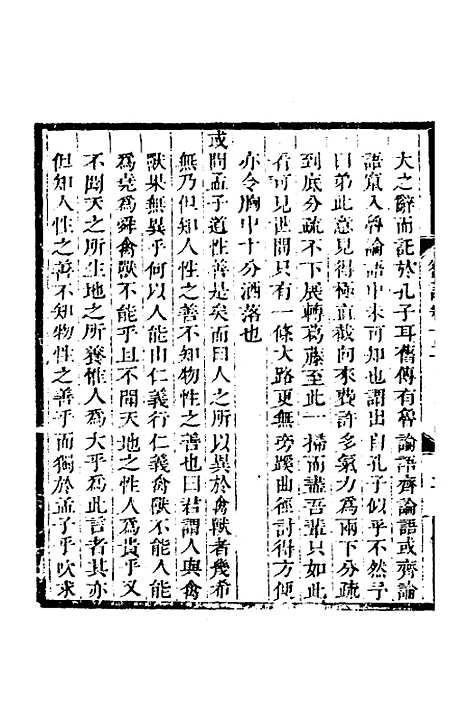 大之辭而託於孔子耳舊傳有魯論語齊論語或齊論
語竄入魯論語中未可知也謂出自孔子似乎不然予
曰弟此意見得極直截向來費許多氣力為兩下分疏
到底分疏不下展轉葛藤至此一掃而盡吾輩只如此
看可見世間只有一條大路更無旁蹊曲徑討得方便
亦令胸中十分洒落也
或問孟子道性善是矣而曰人之所以異於禽獸者幾希
無乃但知人性之善不知物性之善也曰若謂人與禽
獸果無異乎何以人能由仁義行仁義禽獸不能人能
為堯為舜禽獸不能乎且不聞天地之性人為貴乎又
不聞天之所生地之所養惟人為大乎為此言者其亦
但知人性之善不知物性之善乎而獨於孟子乎吹求